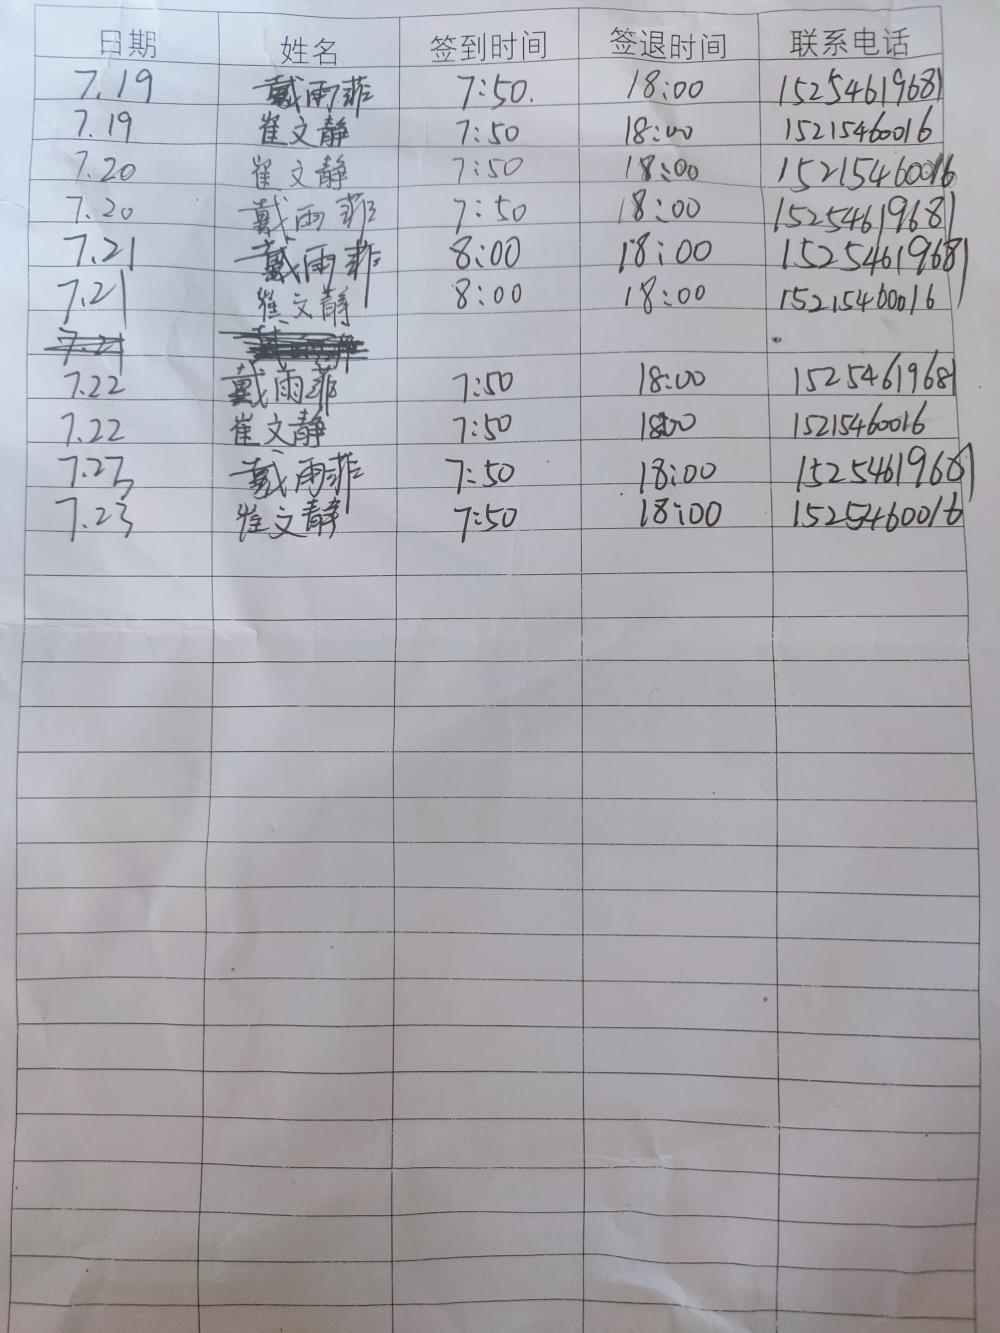 日期 姓名 签到时间 签退时间 联系电话
7.19 戴雨菲 7:50. 18:00 15254619681
7.19 崔文静 7:50 18:00 15215460016
7.20 崔文静 7:50 18:00 15215460016
7.20 戴雨菲 7:50 18:00 15254619681
7.21 戴雨菲 8:00 18:00 15254619681
7.21 崔文静 8:00 18:00 15215460016
7.21
7.22 戴雨菲 7:50 18:00 15254619681
7.22 崔文静 7:50 18:00 15215460016
7.23 戴雨菲 7:50 18:00 15254619681
7.23 崔文静 7:50 18:00 15215460016